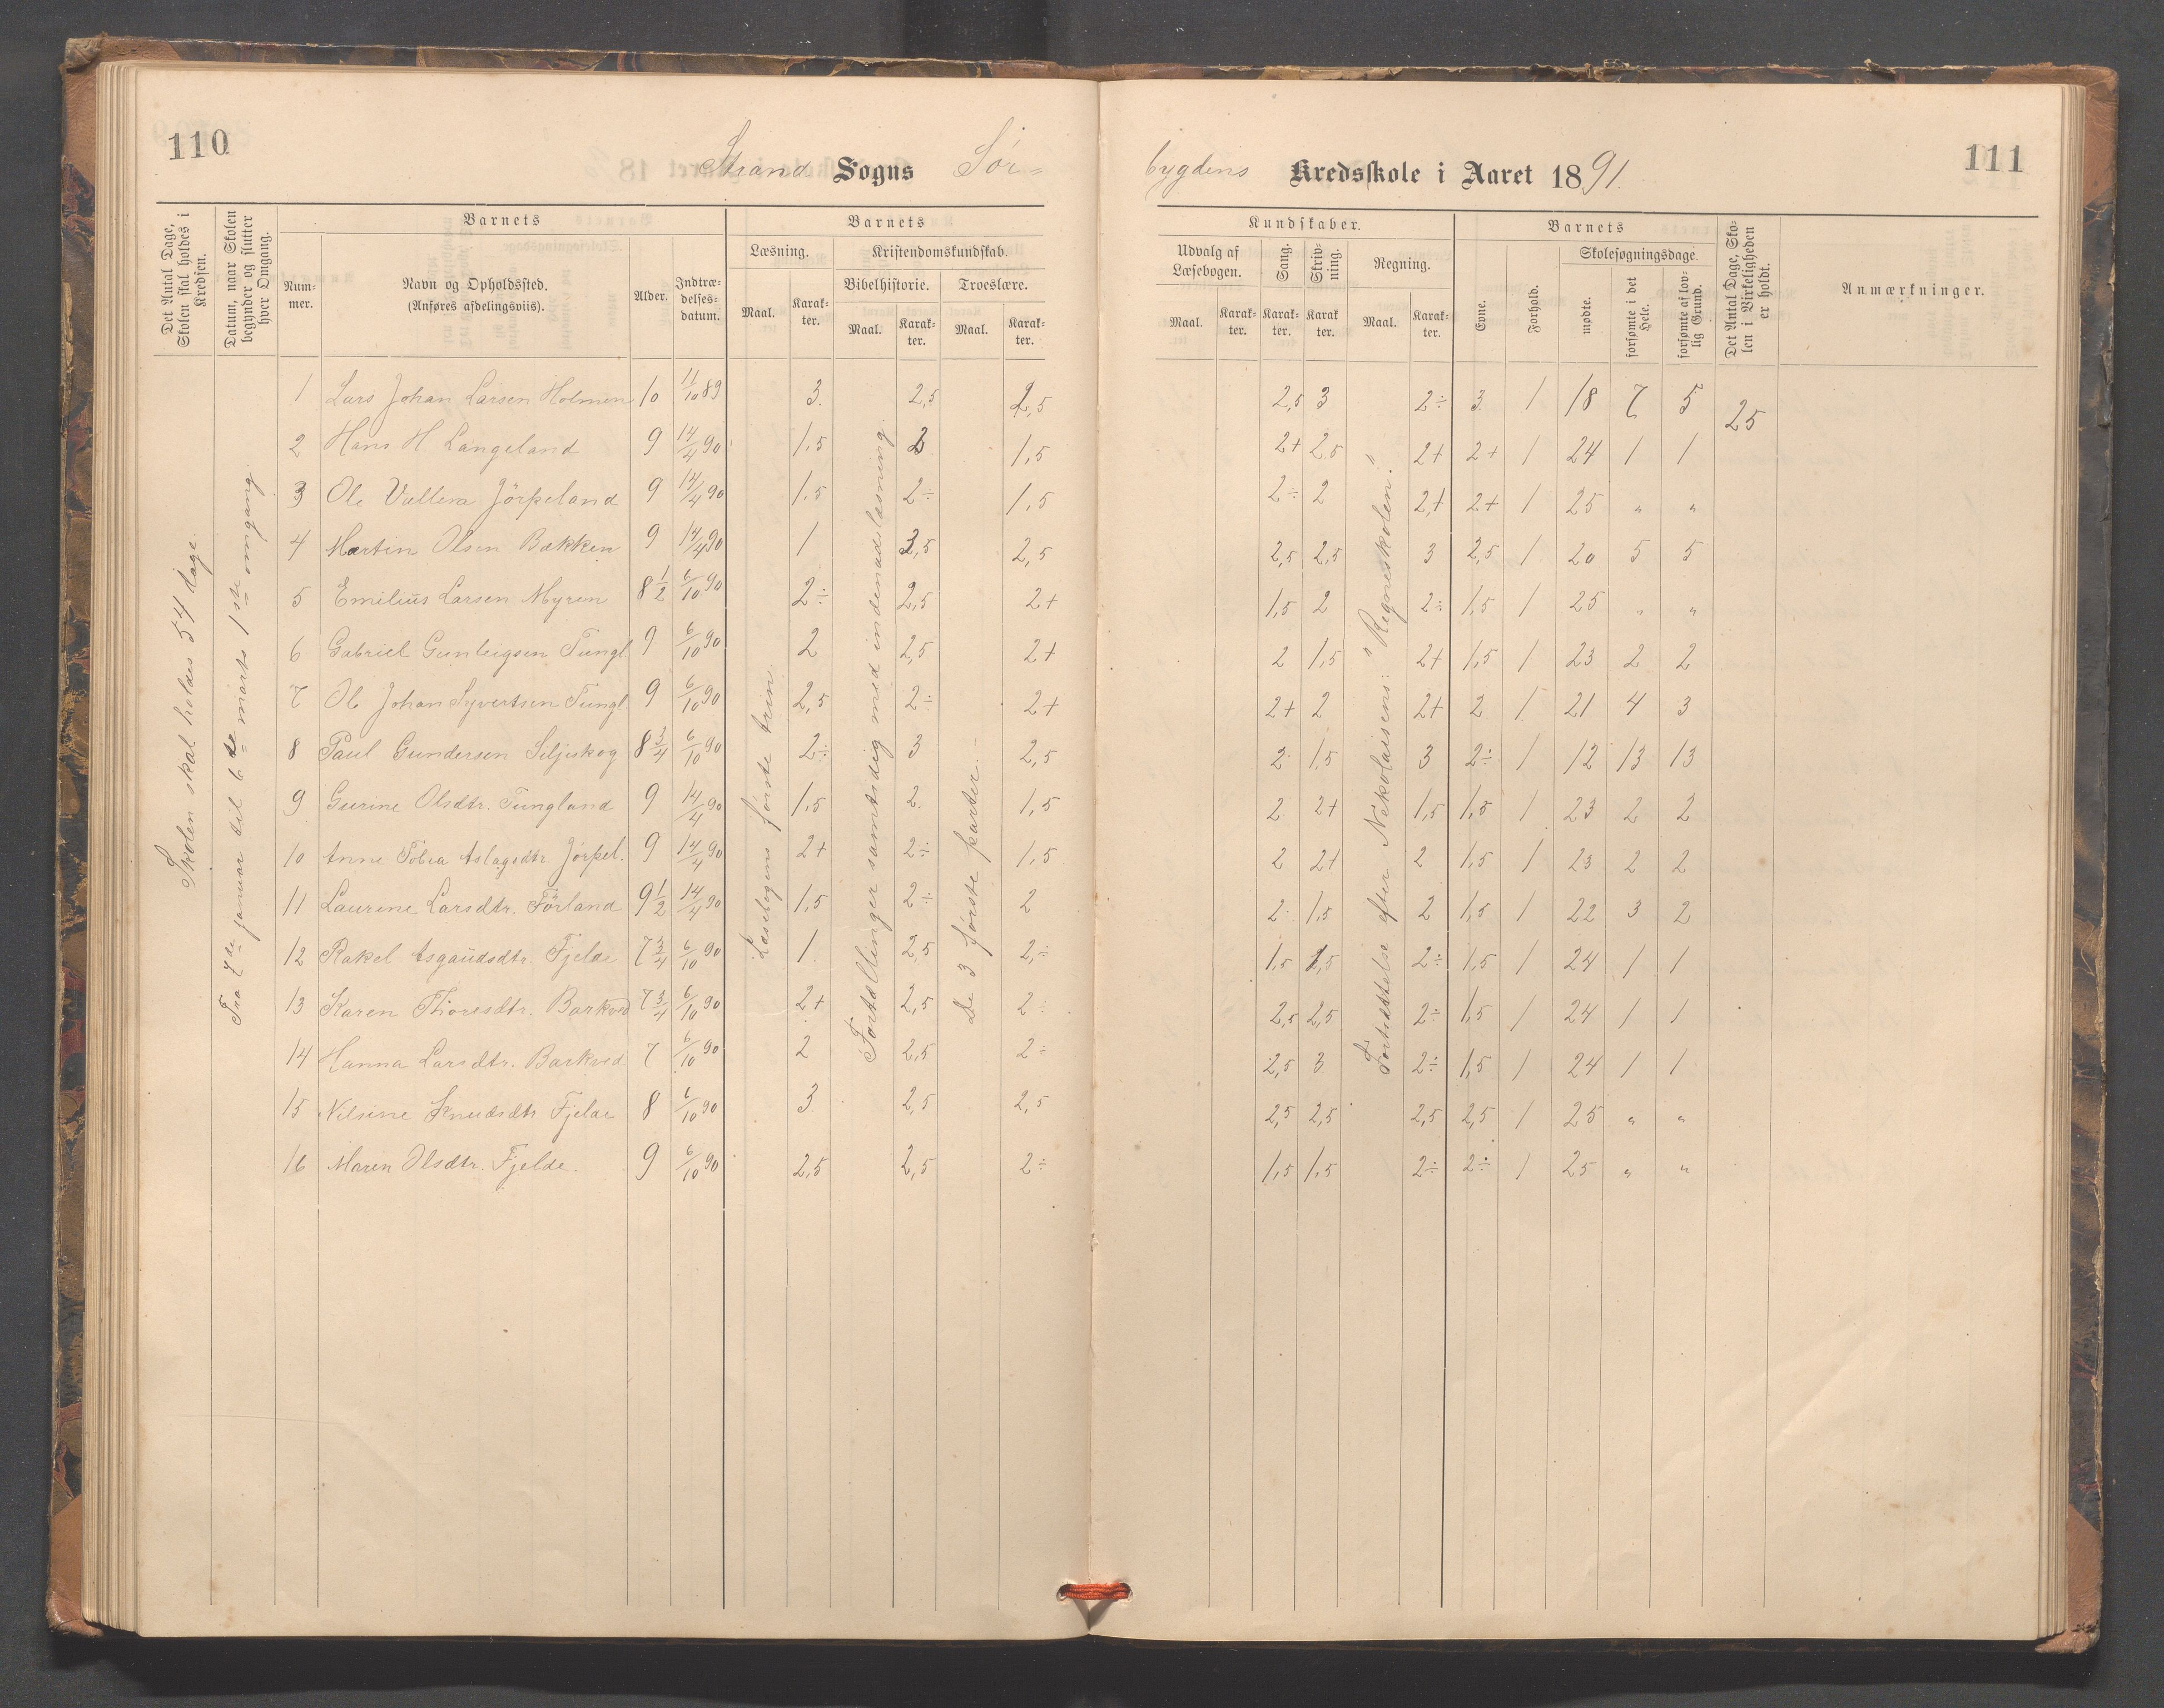 110
Strand Sogns Sør-
bygdens Kredsskole i Aaret 1891.
111
Det Antal Dage, Skolen skal holdes i Kredsen.
Datum, naar Skolen begynder og slutter hver Omgang.
Barnets
Nummer.
Navn og Opholdssted.
(Anføres afdelingsviis).
Alder.
Indtrædelsesdatum.
Barnets
Læsning.
Maal.
Karakter.
Kristendomskundskab.
Bibelhistorie.
Maal.
Karakter.
Troeslære.
Maal.
Karakter.
Kundskaber.
Udvalg af Læsebogen.
Maal.
Karakter.
Sang.
Karakter.
Skrivning.
Karakter.
Regning.
Maal.
Karakter.
Barnets
Evne.
Forhold.
Skolesøgningsdage.
mødte.
forsømte i det Hele.
forsømte af lovlig Grund.
Det Antal Dage, Skolen i Virkeligheden er holdt.
Anmærkninger.
Skolen skal holdes 54 dage.
Fra 7de januar til 6te marts 1ste omgang.
Læsebogens første trin.
Fortællinger samtidig med indenadslæsning.
De 3 første parter.
Fortsættelse efter Nikolaisens: "Regneskolen."
1 Lars Johan Larsen Holmen 10 11/10 89 3. 2,5 2,5 2,5 3 2÷ 3 1 18 7 5 25
2 Hans H. Langeland 9 14/4 90 1,5 2 1,5 2+ 2,5 2+ 2+ 1 24 1 1
3 Ole Vallem Jörpeland 9 14/4 90 1,5 2÷ 1,5 2÷ 2 2,+ 2+ 1 25 " "
4 Martin Olsen Bakken 9 14/4 90 1 2,5 2,5 2,5 2,5 3 2,5 1 20 5 5
5 Emilius Larsen Myren 8 1/2 6/10 90 2÷ 2,5 2+ 1,5 2 2÷ 1,5 1 25 " "
6 Gabriel Gunleigsen Tungl 9 6/10 90 2 2,5 2+ 2 1,5 2+ 1,5 1 23 2 2
7 Ol Johan Syvertsen Tungl. 9 6/10 90 2,5 2÷ 2+ 2+ 2 2+ 2 1 21 4 3
8 Paul Gundersen Siljuskog 8 3/4 6/10 90 2÷ 3 2,5 2 1,5 3 2÷ 1 12 13 13
9 Gurine Olsdtr. Tungland 9 14/4 90 1,5 2. 1,5 2 2+ 1,5 1,5 1 23 2 2
10 Anne Tobia Aslagsdtr Jörpel. 9 14/4 90 2+ 2÷ 1,5 2 2+ 2 1,5 1 23 2 2
11 Laurine Larsdtr. Förland 9 1/2 14/4 90 1,5 2÷ 2 2 1,5 2 1,5 1 22 3 2
12 Rakel Asgaudsdtr. Fjelde 7 3/4 6/10 90 1. 2,5 2,÷ 1,5 1,5 2÷ 1,5 1 24 1 1
13 Karen Thoresdtr. Barkved 7 3/4 6/10 90 2+ 2,5 2÷ 2,5 2,5 2÷ 1,5 1 24 1 1
14 Hanna Larsdtr. Barkved 7 6/10 90 2 2,5 2÷ 2,5 3 2÷ 1,5 1 24 1 1
15 Nilsine Knudsdtr Fjelde 8 6/10 90 3 2,5 2,5 2,5 2,5 2,5 2,5 1 25 " "
16 Maren Olsdtr. Fjelde. 9 6/10 90 2,5 2,5 2÷ 1,5 1,5 2÷ 2÷ 1 25 " "